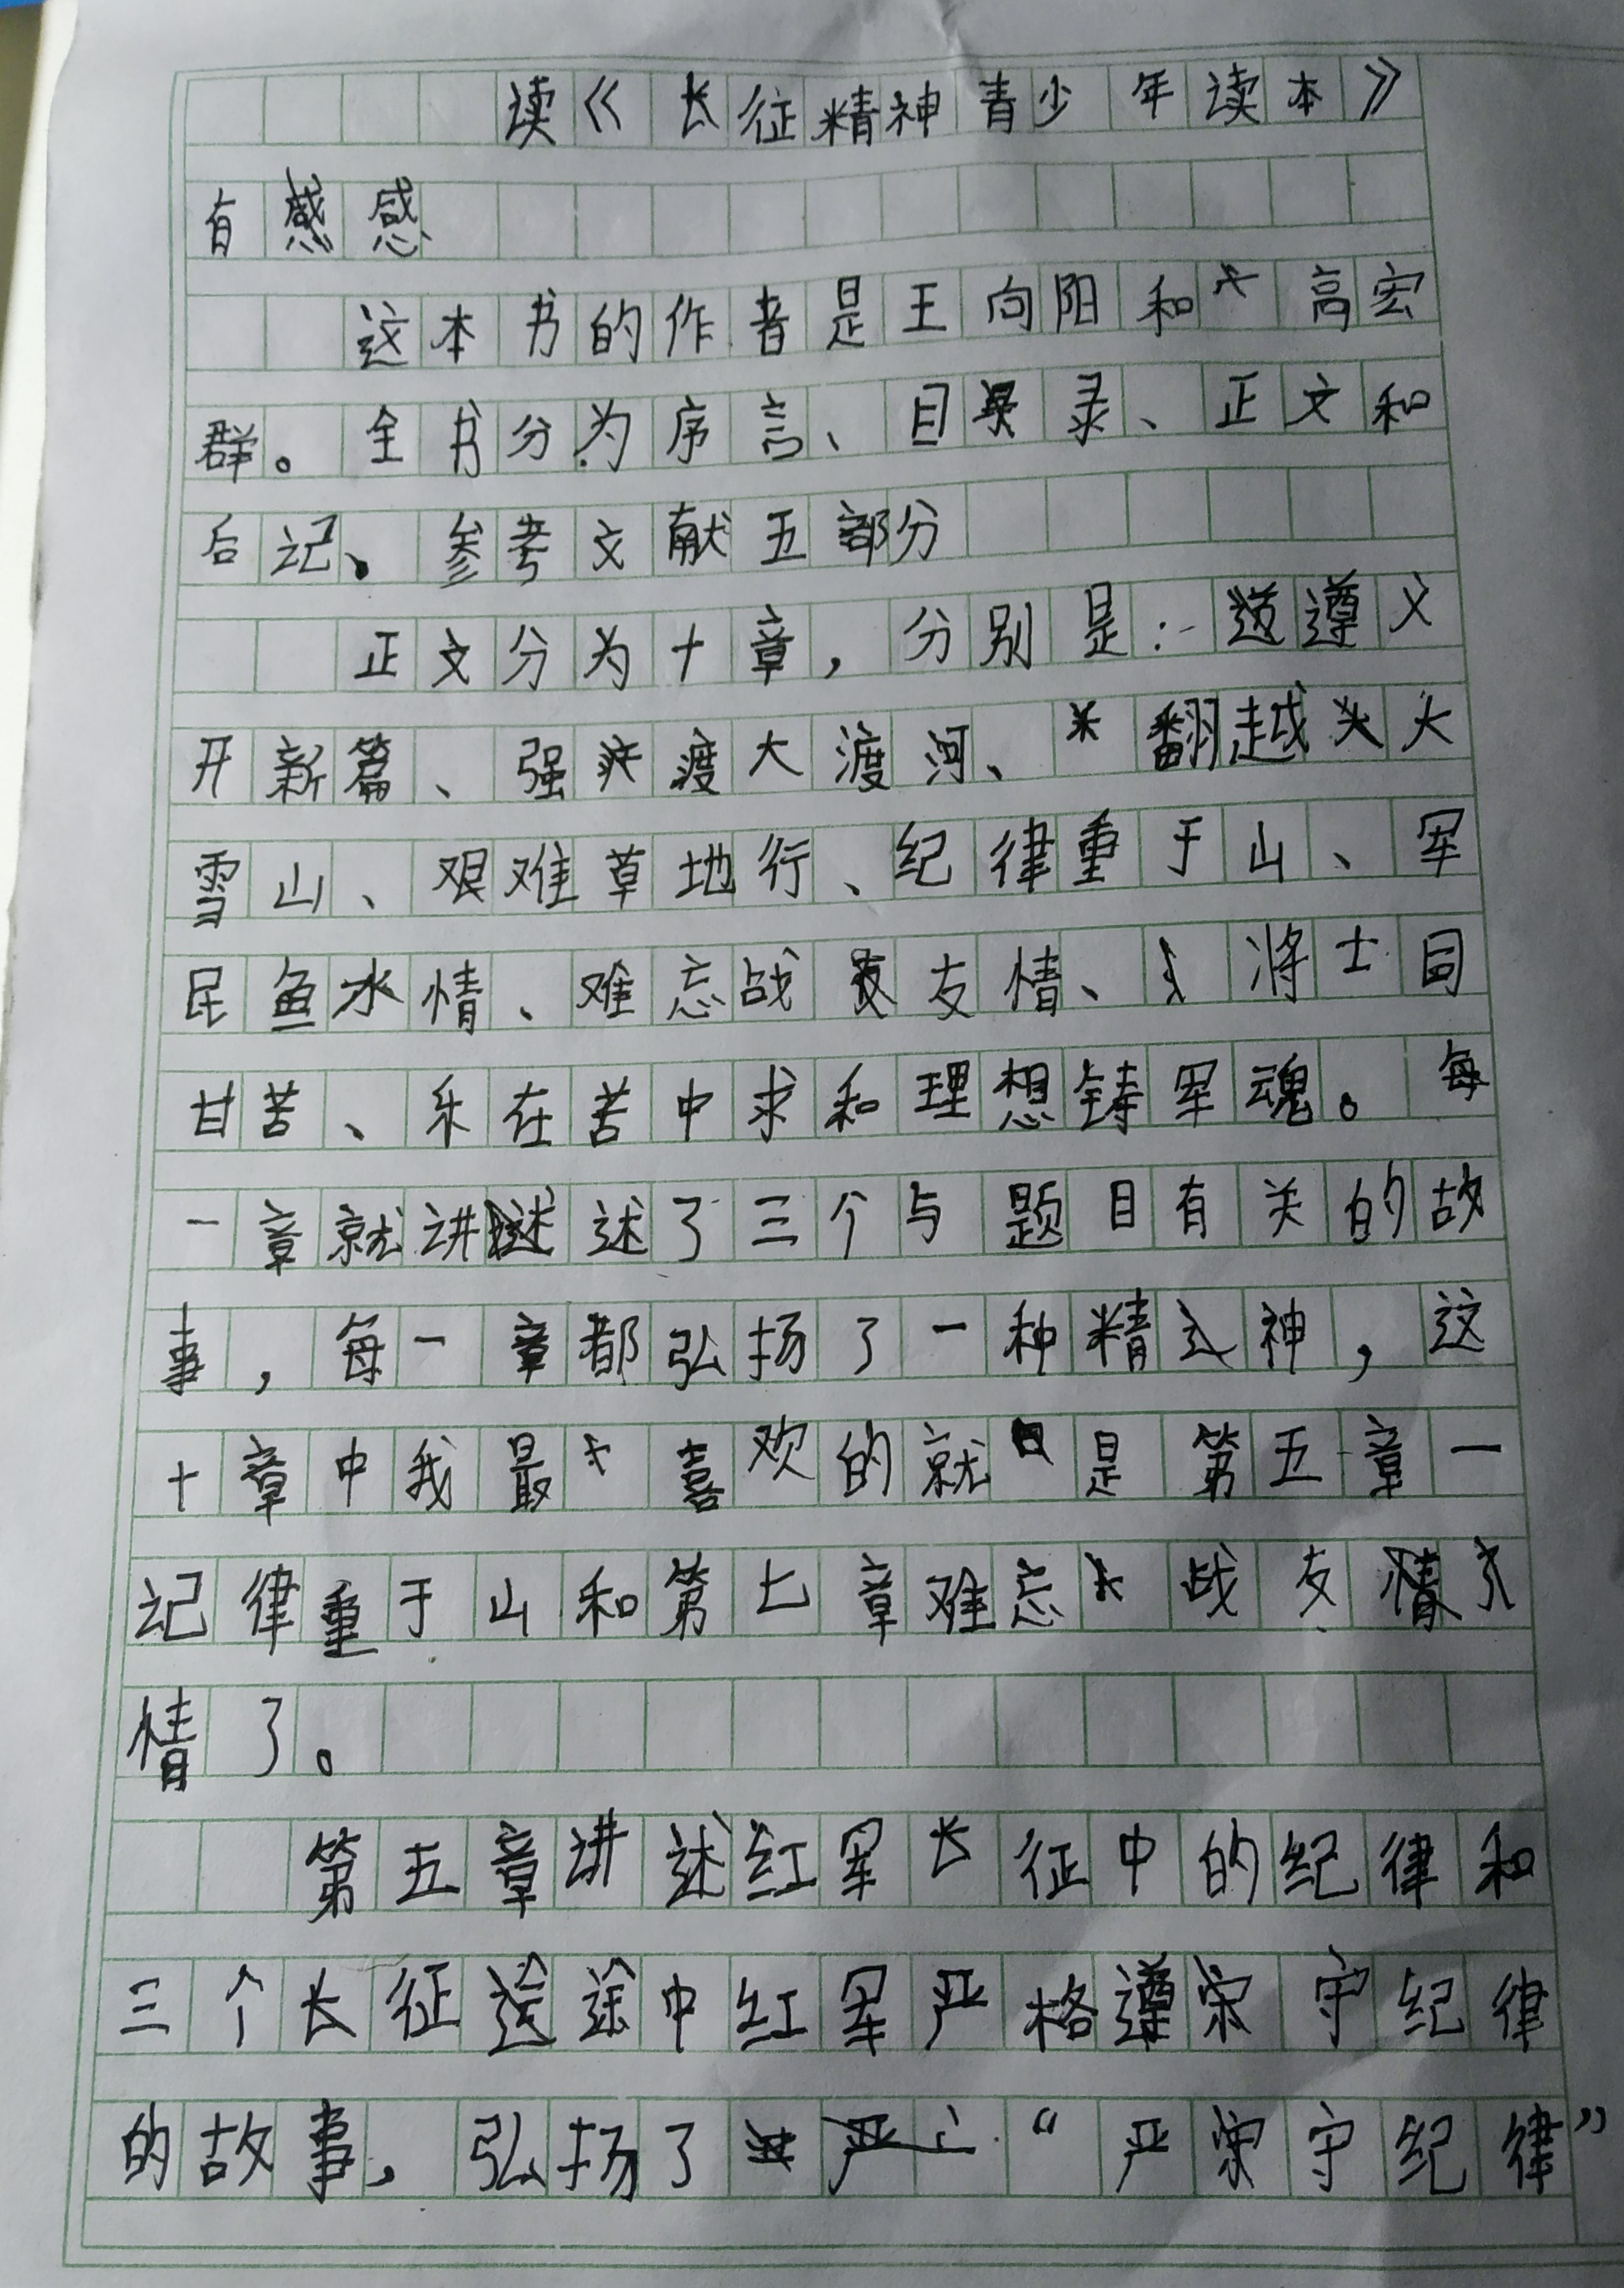 读《长征精神青少年读本》
有感
这本书的作者是王向阳和高宏
群。全书分为序言、目录、正文和
后记、参考文献五部分
正文分为十章，分别是：遵义
开新篇、强渡大渡河、翻越大
雪山、艰难草地行、纪律重于山、军
民鱼水情、难忘战友情、将士同
甘苦、乐在苦中求和理想铸军魂。每
一章就讲述了三个与题目有关的故
事，每一章都弘扬了一种精神，这
十章中我最喜欢的就是第五章一
记律重于山和第七章难忘战友
情了。
第五章讲述红军长征中的纪律和
三个长征途中红军严格遵守纪律
的故事，弘扬了“严守纪律”